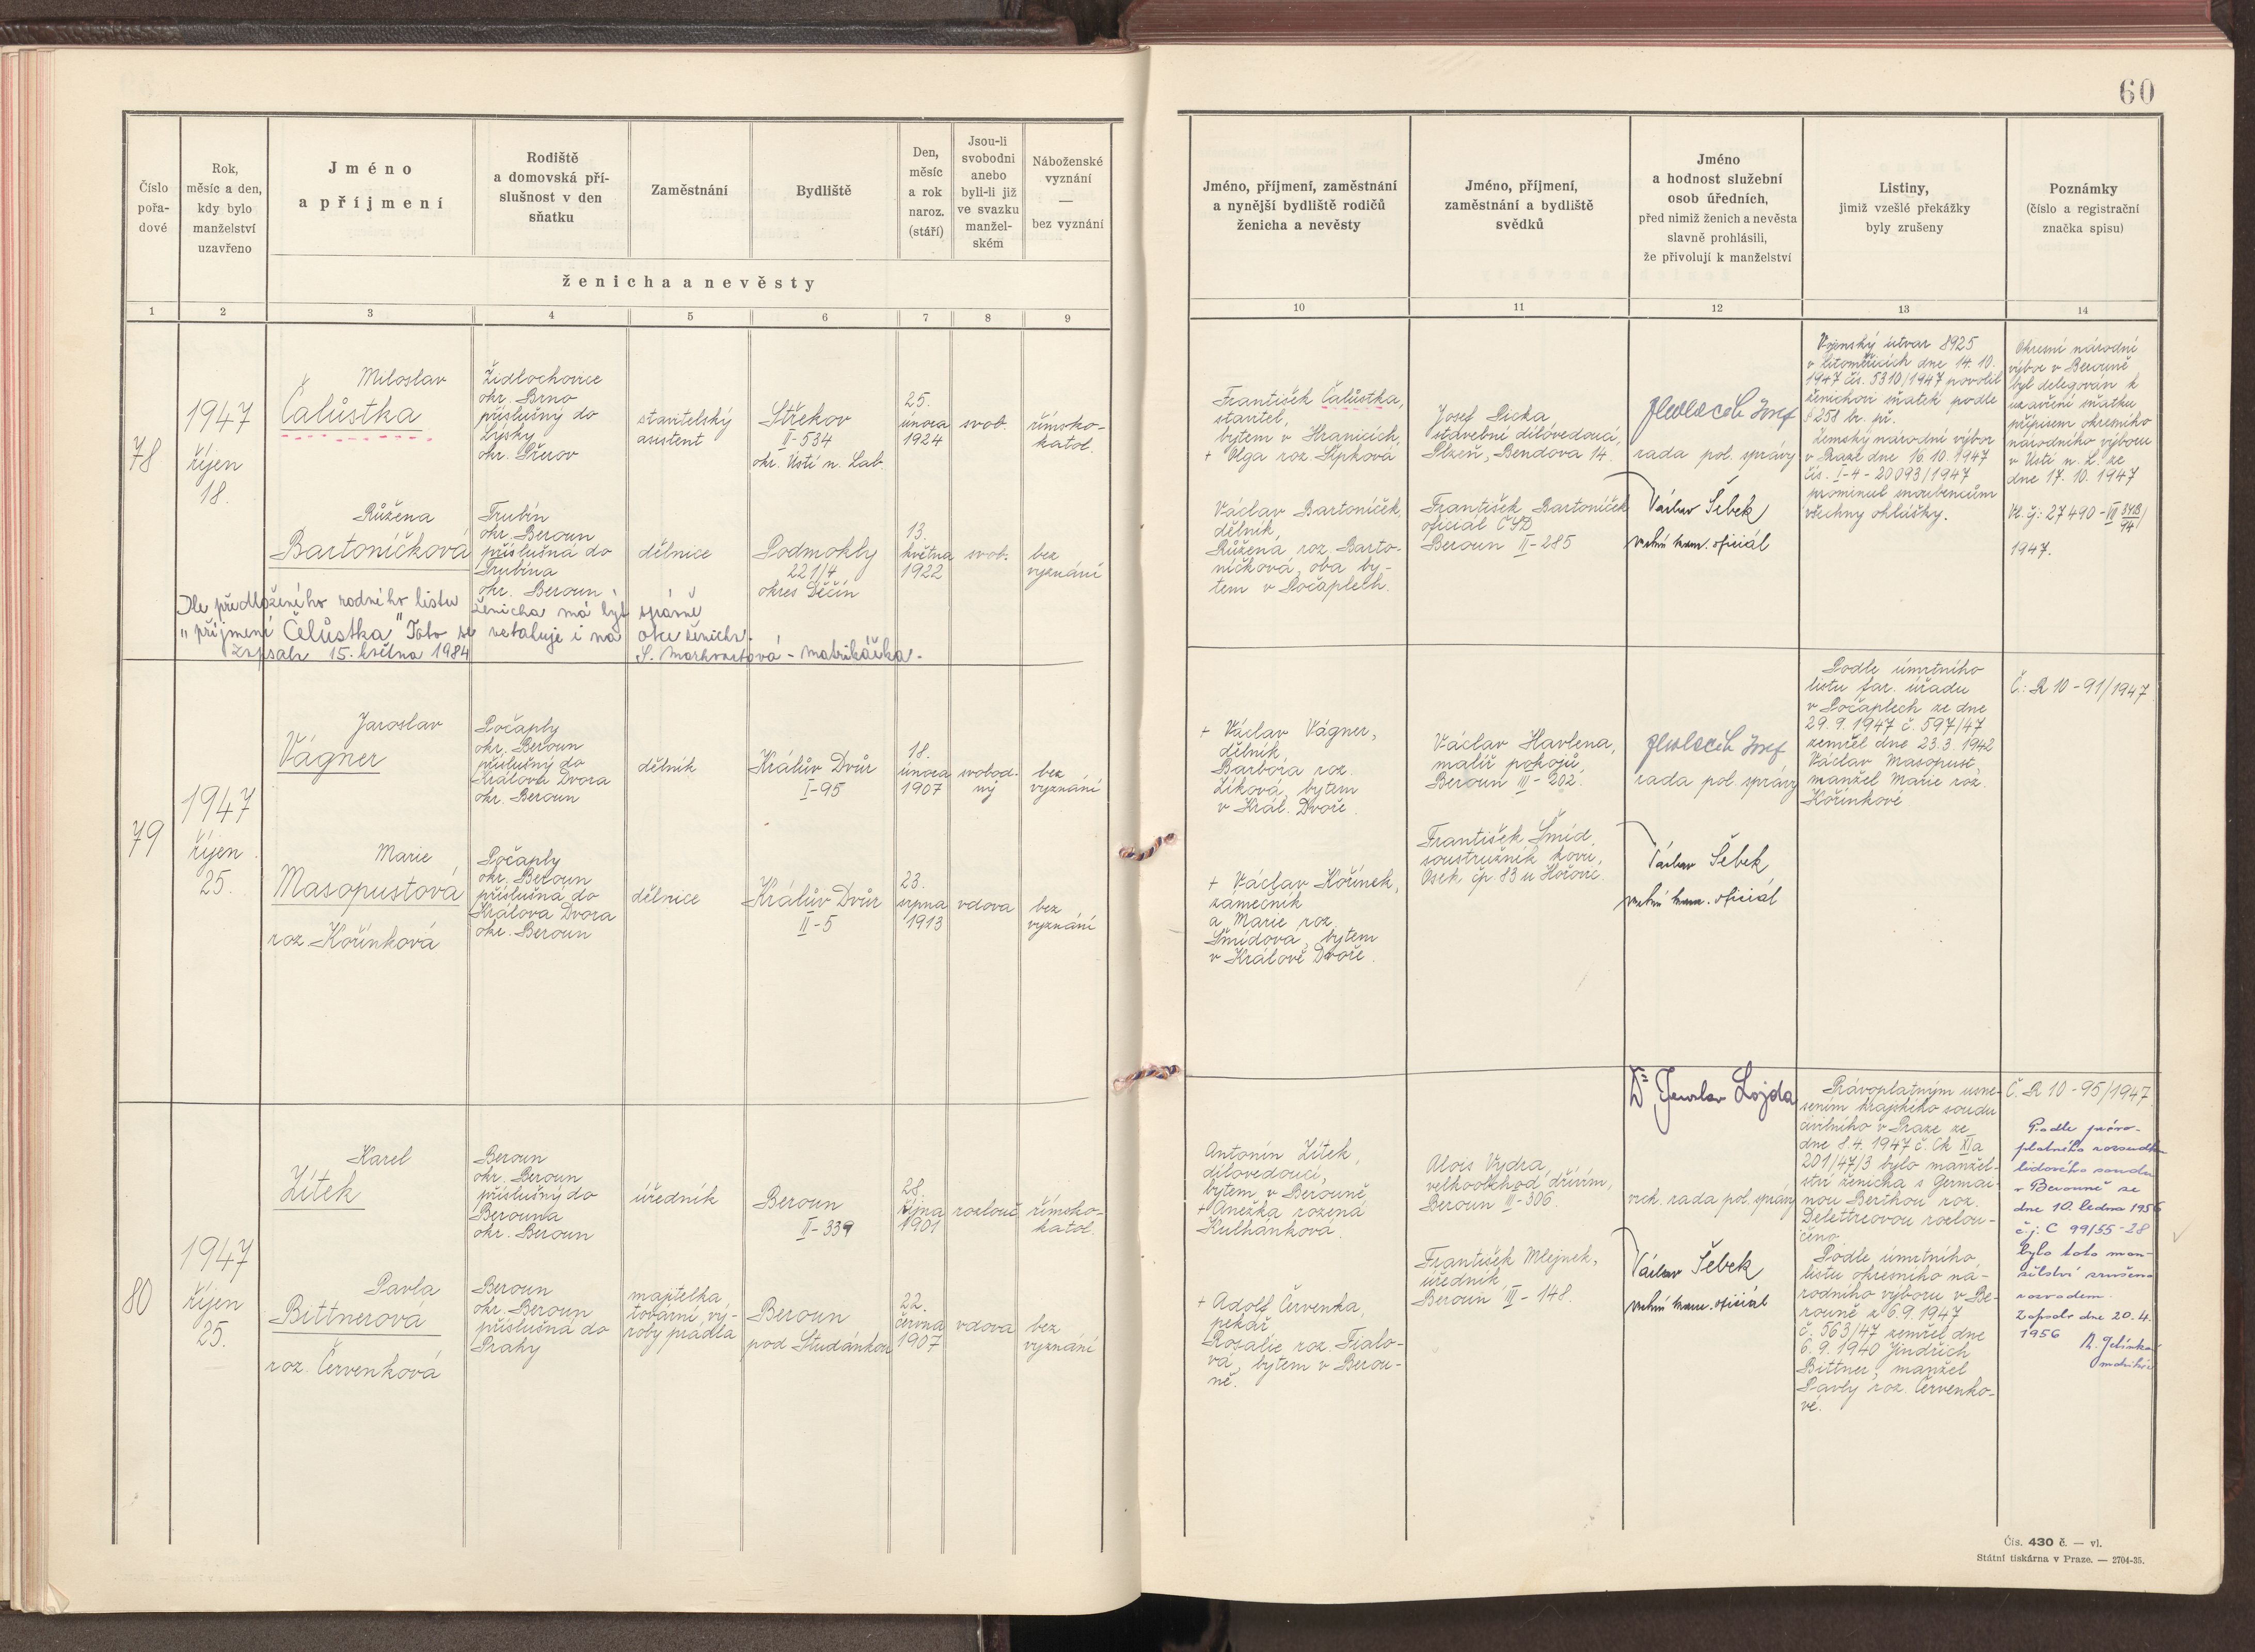 60
Číslo
pořa-
dové
Rok,
měsíc a den,
kdy bylo
manželství
uzavřeno
Jméno
a příjmení
Rodiště
a domovská pří-
slušnost v den
sňatku
Zaměstnání
Bydliště
Den,
měsíc
a rok
naroz.
(stáří)
Jsou-li
svobodni
anebo
byli-li již
ve svazku
manžel-
ském
Náboženské
vyznání
—
bez vyznání
ženicha a nevěsty
1 2 3 4 5 6 7 8 9
Jméno, příjmení, zaměstnání
a nynější bydliště rodičů
ženicha a nevěsty
Jméno, příjmení,
zaměstnání a bydliště
svědků
Jméno
a hodnost služební
osob úředních,
před nimiž ženich a nevěsta
slavně prohlásili,
že přivolují k manželství
Listiny,
jimiž vzešlé překážky
byly zrušeny
Poznámky
(číslo a registrační
značka spisu)
10 11 12 13 14
78
1947
říjen
18.
Miloslav
Čalůstka
Židlochovice
okr. Brno
příslušný do
Lýsky
okr. Přerov
stavitelský
asistent
Střekov
II-534
okr. Ústí n. Lab.
25.
února
1924
svob.
římsko-
katol.
Růžena
Bartoníčková
Trubín
okr. Beroun
příslušná do
Trubína
okr. Beroun
dělnice
Podmokly
221/4
okres Děčín
13.
května
1922
svob.
bez
vyznání
Dle předloženého rodného listu ženicha má být správně
"příjmení Čelůstka" Toto se vztahuje i na otce ženicha.
Zapsala 15. května 1984 S. Markvartová - matrikářka.
František Čalůstka,
stavitel,
bytem v Hranicích,
+ Olga roz. Šípková
Václav Bartoníček,
dělník,
Růžena roz. Barto-
níčková, oba by-
tem v Počaplech.
Josef Pecka,
stavební dílovedoucí,
Plzeň, Bendova 14.
František Bartoníček
oficiál ČSD
Beroun II-285
Josef
rada pol. správy
Václav Šebek
vrchní kanc. oficiál
Vojenský útvar 8925
v Litoměřicích dne 14.10.
1947 čís. 5310/1947 povolil
ženichovi sňatek podle
§ 251 br. př.
Zemský národní výbor
v Praze dne 16.10.1947
čís. I-4-20093/1947
prominul snoubencům
všechny ohlášky.
Okresní národní
výbor v Berouně
byl delegován k
uzavření sňatku
přípisem okresního
národního výboru
v Ústí n. L. ze
dne 17. 10. 1947
Vl. čj: 27490-VII
1947.
79
1947
říjen
25.
Jaroslav
Vágner
Počaply
okr. Beroun
příslušný do
Králova Dvora
okr. Beroun
dělník
Králův Dvůr
I-95
18.
února
1907
svobod-
ný
bez
vyznání
Marie
Masopustová
roz. Kořínková
Počaply
okr. Beroun
příslušná do
Králova Dvora
okr. Beroun
dělnice
Králův Dvůr
II-5
23.
srpna
1913
vdova
bez
vyznání
+ Václav Vágner,
dělník,
Barbora roz.
Zíková, bytem
v Král. Dvoře.
+ Václav Kořínek,
zámečník
a Marie roz.
Šmídova, bytem
v Králově Dvoře.
Václav Havlena,
malíř pokojů,
Beroun III-202.
František Šmíd,
soustružník kovu,
Osek čp. 83 u Hořovic.
Josef
rada pol. správy
Václav Šebek
vrchní kanc. oficiál
Podle úmrtního
listu far. úřadu
v Počaplech ze dne
29.9.1947 č. 597/47
zemřel dne 23.3.1942
Václav Masopust,
manžel Marie roz.
Kořínkové.
Č.: R 10-91/1947
80
1947
říjen
25.
Karel
Zítek
Beroun
okr. Beroun
příslušný do
Berouna
okr. Beroun
úředník
Beroun
II-339
28.
října
1901
rozlouč.
římsko-
katol.
Pavla
Bittnerová
roz. Červenková
Beroun
okr. Beroun
příslušná do
Prahy
majitelka
tovární vý-
roby prádla
Beroun
pod Studánkou
22.
června
1907
vdova
bez
vyznání
Antonín Zítek,
dílovedoucí,
bytem v Berouně,
+ Anežka rozená
Kulhánková.
+ Adolf Červenka,
pekař
Rosalie roz. Fialo-
vá, bytem v Berou-
ně.
Alois Vydra,
velkoobchod dřívím,
Beroun III-306.
František Mlejnek,
úředník
Beroun III-148.
Dr Jaroslav Lojda
vrch. rada pol. správy
Václav Šebek
vrchní kanc. oficiál
Právoplatným usne-
sením krajského soudu
civilního v Praze ze
dne 8.4.1947 č. Ck XIa
201/47/3 bylo manžel-
ství ženicha s Germai-
nou Berthou roz.
Delettreovou rozlou-
čeno.
Podle úmrtního
listu okresního ná-
rodního výboru v Be-
rouně z 6.9.1947
č. 563/47 zemřel dne
6.9.1940 Jindřich
Bittner, manžel
Pavly roz. Červenko-
vé.
Č. R 10-95/1947
Podle právo-
platného rozsudku
lidového soudu
v Berouně ze
dne 10. ledna 1956
čj: C 99/55-28
bylo toto man-
želství zrušeno
rozvodem.
Zapsáno dne 20.4.
1956
Čís. 430 č. — vl.
Státní tiskárna v Praze. — 2704-35.